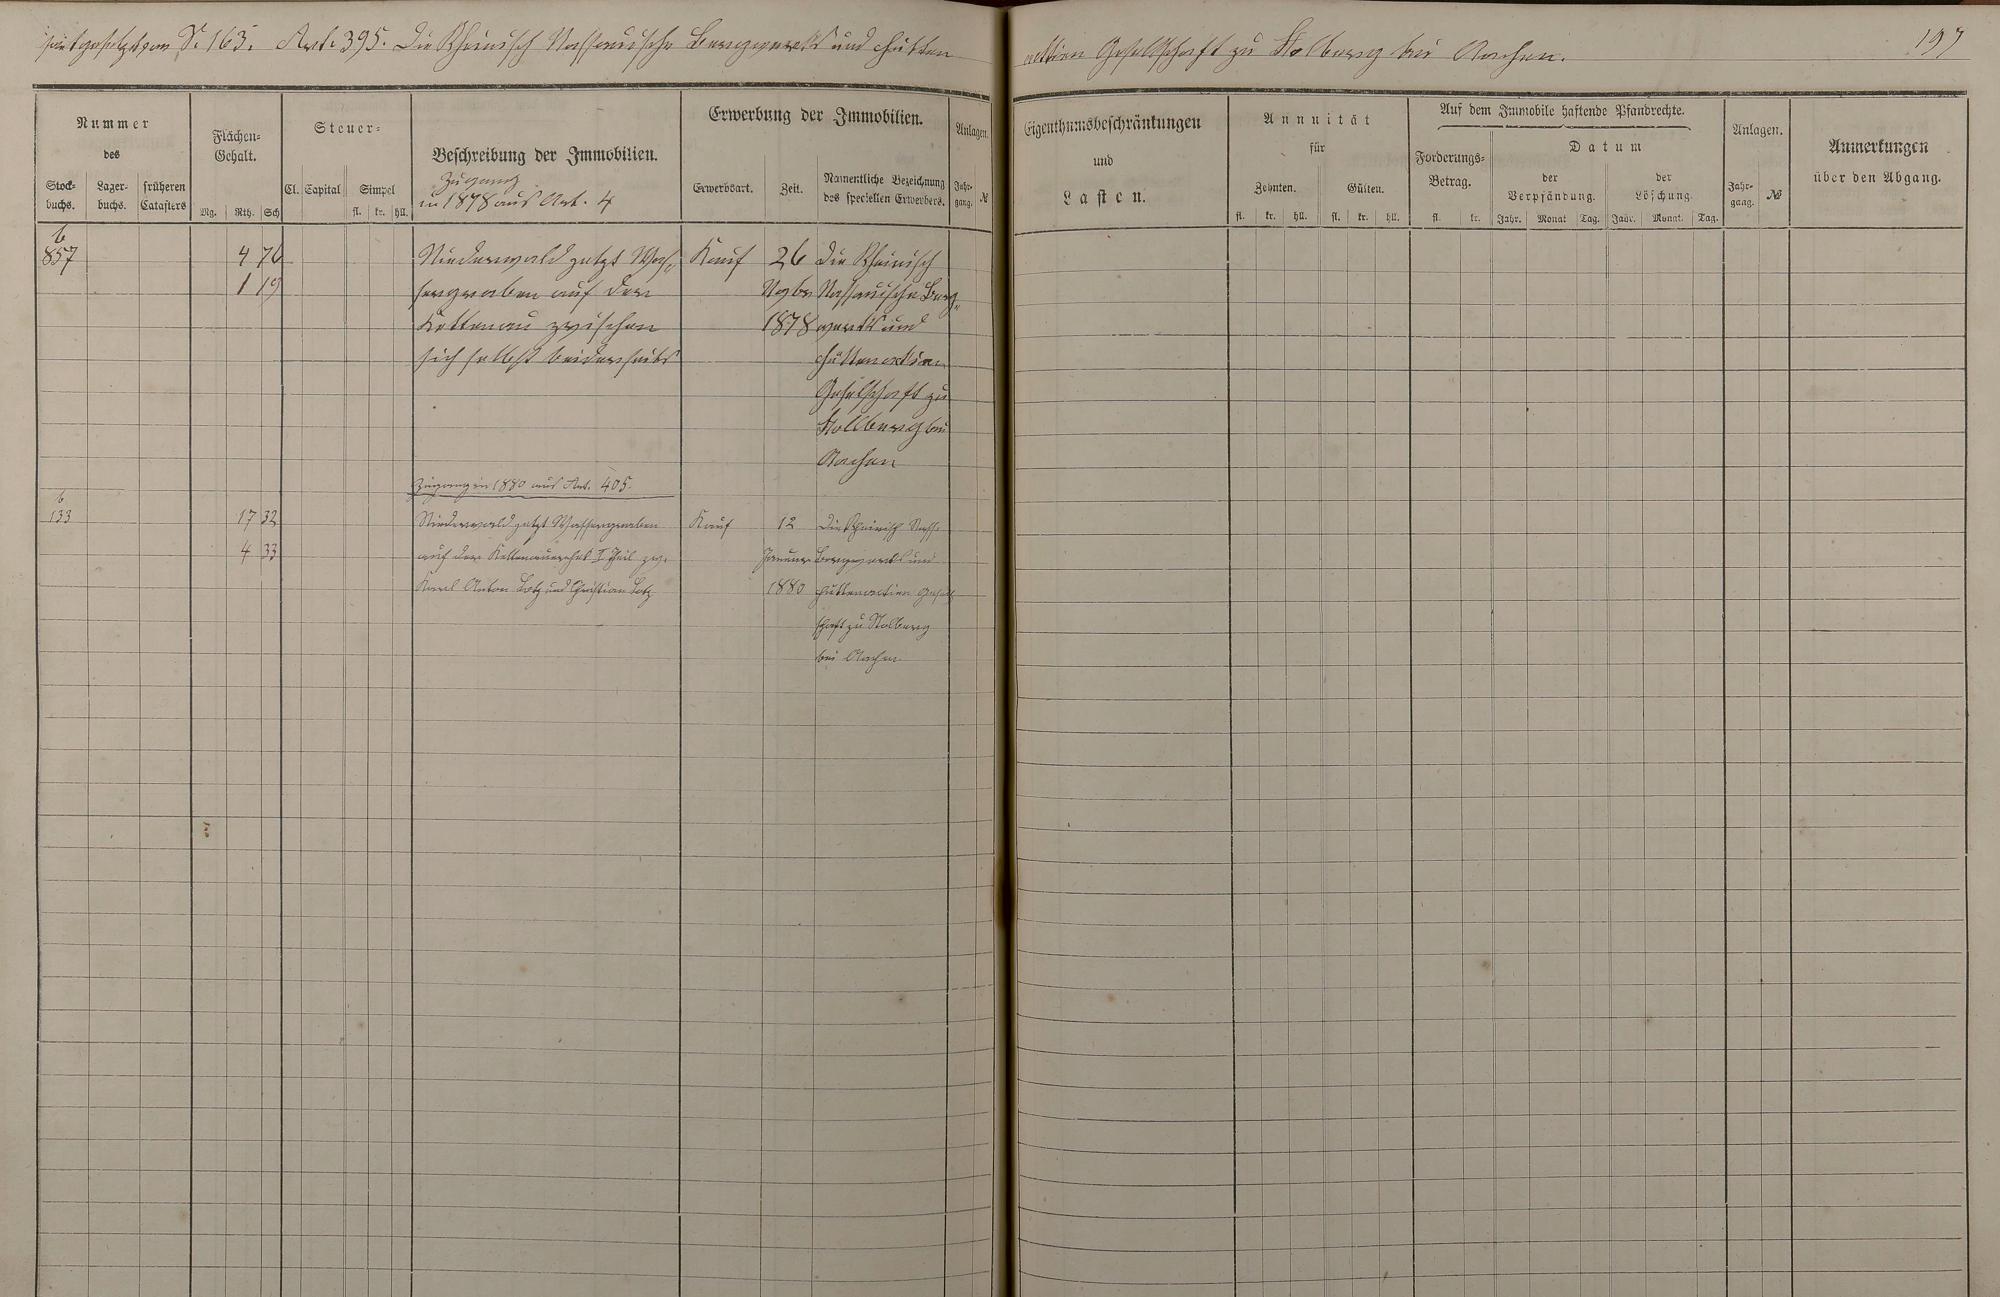 fortgesetzt von S. 163. Art. 395. Die Rheinisch Nassauische Bergwerks und Hütten
actien Gesellschaft zu Stolberg bei Aachen.
197
Nummer
des
Stock-
buchs.
Lager-
buchs.
früheren
Catasters
Flächen-
Gehalt.
Mg. Rth. Sch
Steuer-
Cl. Capital Simpel
fl. kr. hll.
Beschreibung der Immobilien.
Zugang
in 1878 aus Art. 4
Erwerbung der Immobilien.
Erwerbsart. Zeit.
Namentliche Bezeichnung
des speciellen Erwerbers.
Anlagen.
Jahr-
gang. №
Eigenthumsbeschränkungen
und
Lasten.
Annuität
für
Zehnten. Gülten.
fl. kr. hll. fl. kr. hll.
Auf dem Immobile haftende Pfandrechte.
Forderungs-
Betrag.
fl. kr.
Datum
der
Verpfändung.
der
Löschung.
Jahr. Monat Tag. Jahr. Monat. Tag.
Anlagen.
Jahr-
gang. №
Anmerkungen
über den Abgang.
b
857 4 76 Niederwald jetzt Was- Kauf 26 die Rheinisch
1 19 sergraben auf der Nvbr Nassauische Berg-
Kettenau zwischen 1878 werks und
sich selbst beiderseits Hüttenactien
Gesellschaft zu
Stollberg bei
Aachen
Zugang in 1880 aus Art. 405.
b
133 17 32 Niederwald jetzt Wassergraben Kauf 12 Die Rheinisch Nass.
4 33 auf der I Theil zw. Januar Bergwerks und
Karl Anton Lotz und Christian Lotz 1880 Hüttenactien Gesell
schaft zu Stolberg
bei Aachen